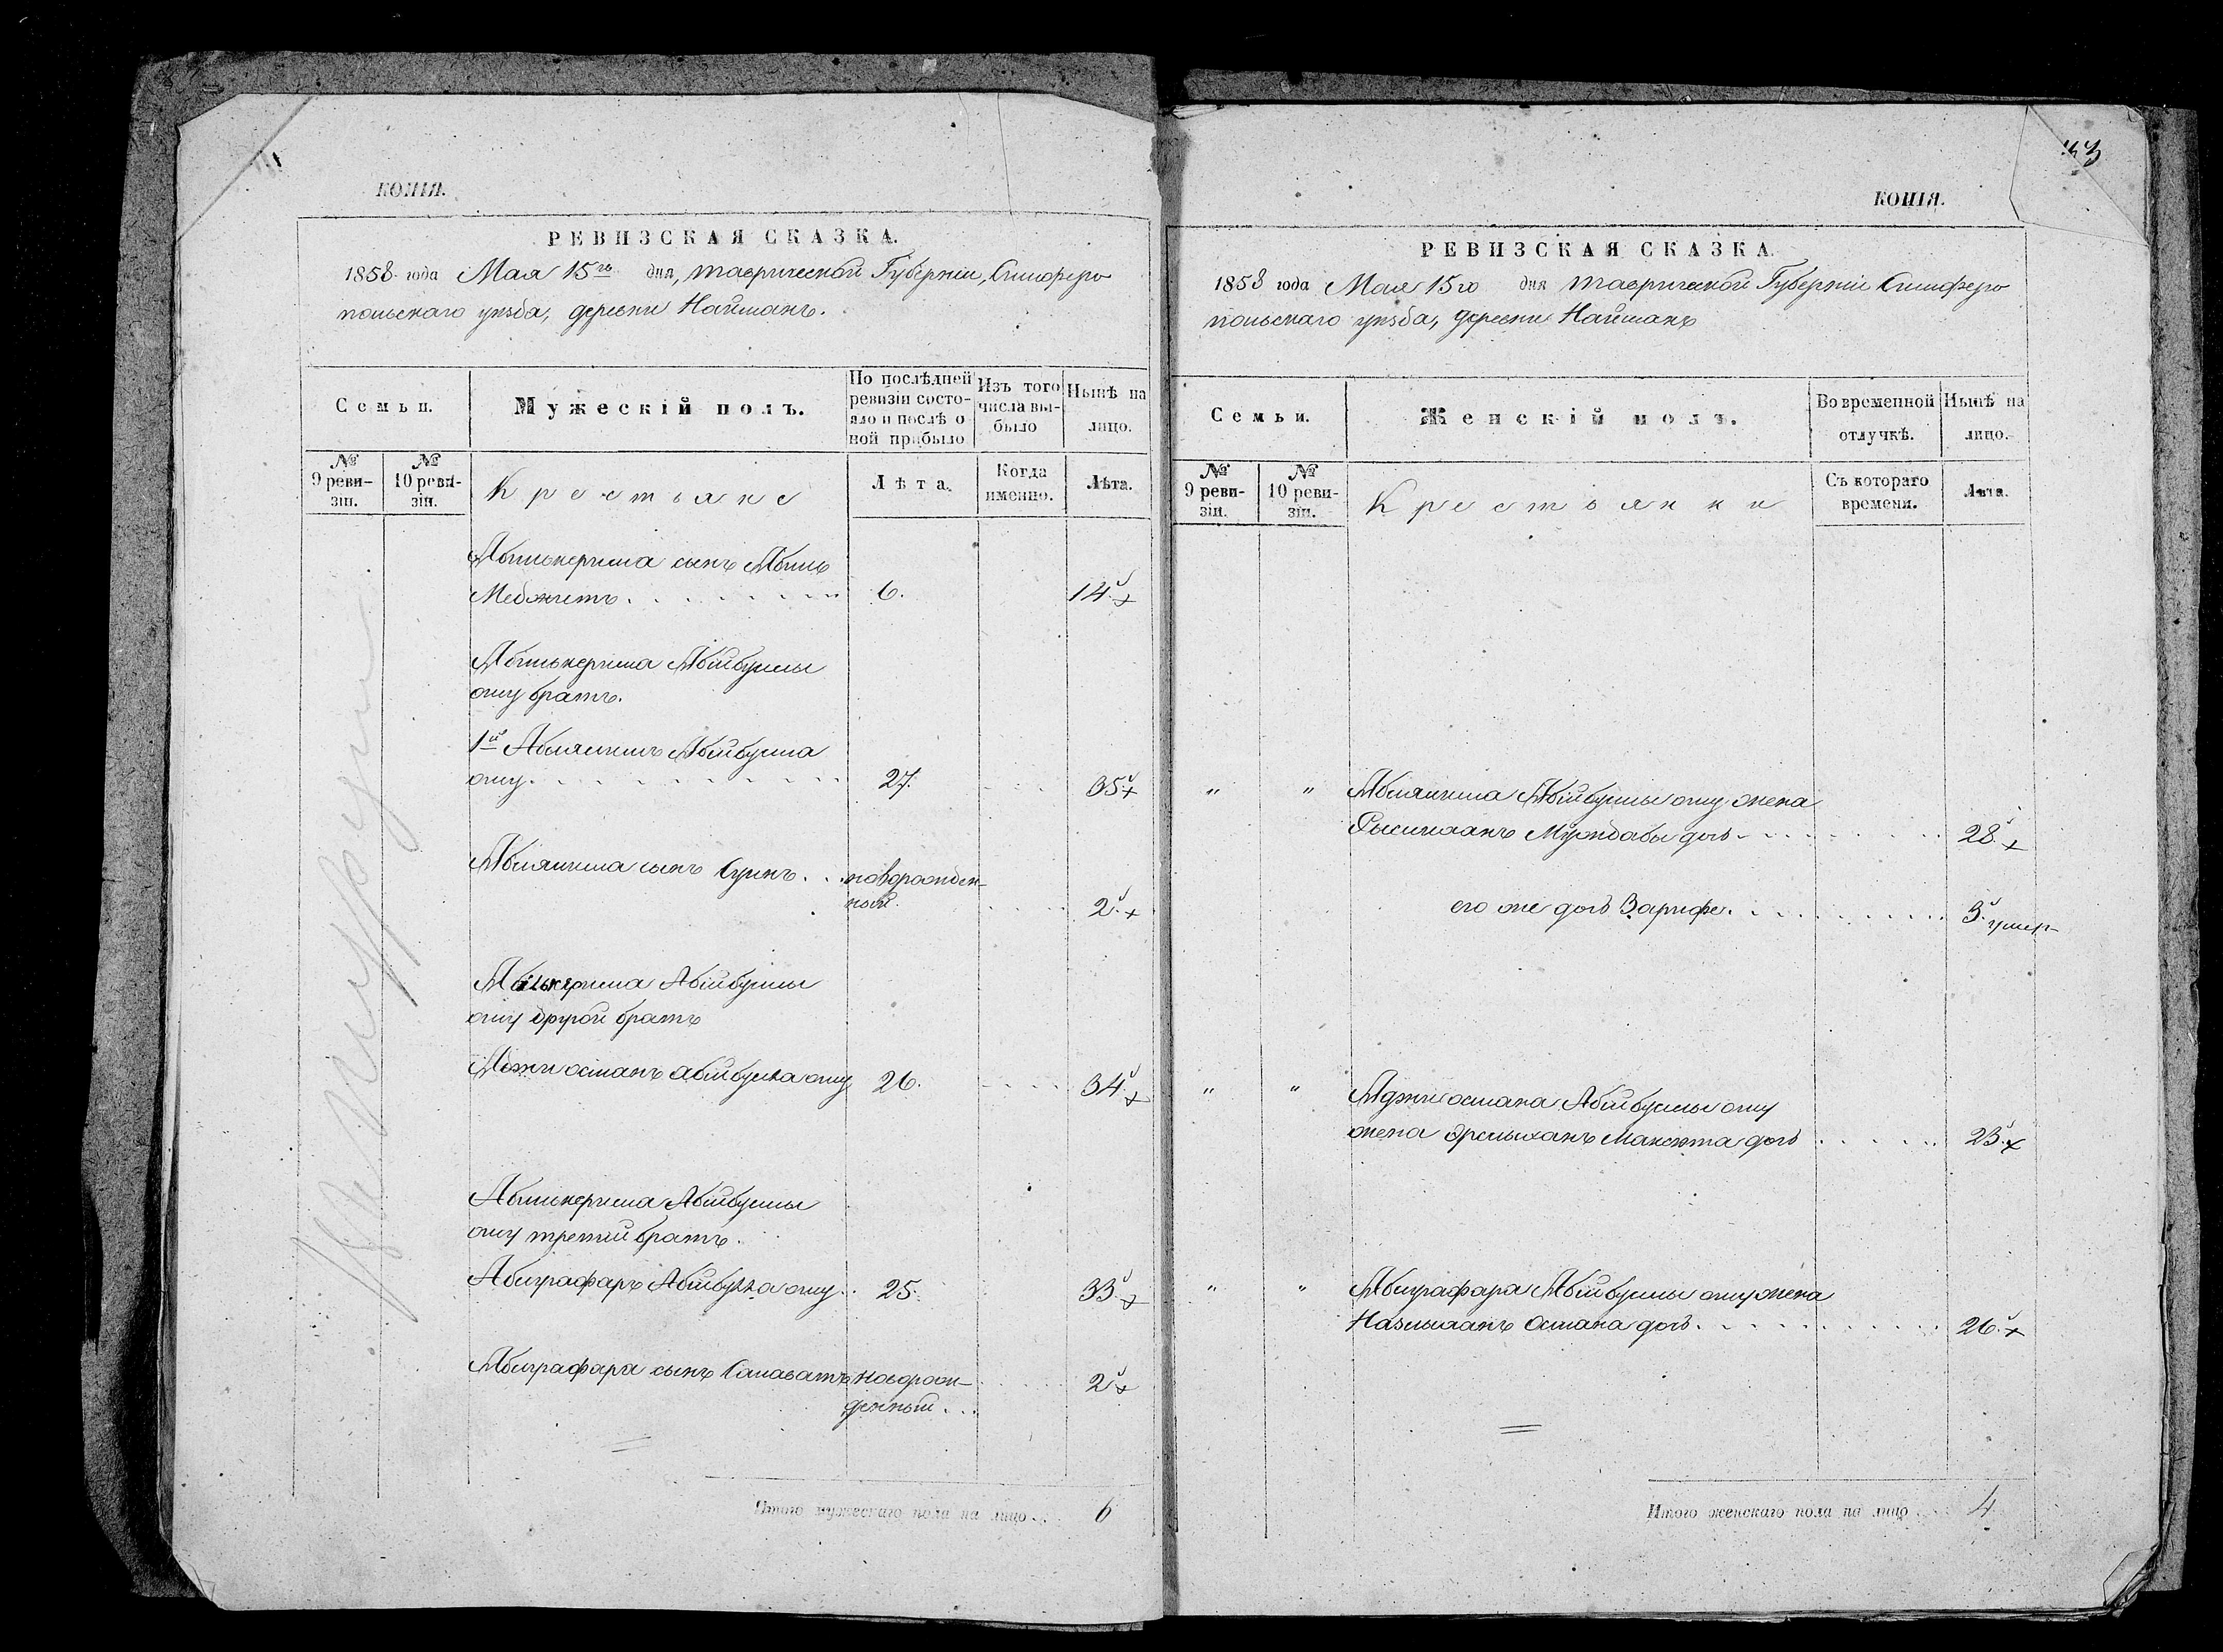 КОПІЯ.
РЕВИЗСКАЯ СКАЗКА.
1858 года Мая 15го дня, Таврической Губерніи, Симферо
польскаго уѣзда, деревни Найманъ.
Семьи.
Мужескій полъ.
По послѣдней
ревизіи состо-
яло и послѣ о
ной прибыло
Изъ того
числа вы-
было
Нынѣ на
лицо.
№
9 реви-
зіи.
№
10 реви-
зіи.
Крестьяне
Лѣта.
Когда
именно.
Лѣта.
Абилькерима сынъ Абиль
Меджитъ. 6. 14.
Абилькерима Абибуллы
оглу братъ.
1й Аблялимъ Абибулла
оглу. 27. 35.
Аблялима сынъ новорожден-
ный. 2.
Абилькерима Абибуллы
оглу другой братъ
Аджиосманъ Абибулла оглу 26. 34.
Абилькерима Абибуллы
оглу третій братъ.
Абиграфаръ Абибулла оглу 25. 33.
Абиграфара сынъ Салаватъ новорож-
денный... 2
Итого мужескаго пола на лицо... 6
КОПІЯ.
РЕВИЗСКАЯ СКАЗКА.
1858 года Мая 15го дня Таврической Губерніи Симферо
польскаго уѣзда, деревни Найманъ
Семьи.
Женскій полъ.
Во временной
отлучкѣ.
Нынѣ на
лицо.
№
9 реви-
зіи.
№
10 реви-
зіи.
Крестьянки
Съ котораго
времени.
Лѣта.
" " Аблялима Абибуллы оглу жена
дочь 28.
его же дочь Зарифе. 3. умер
" " Аджиосмана Абибуллы оглу
жена дочь 23.
" " Абиграфара Абибуллы оглу жена
Назлыханъ Османа дочь. 26.
Итого женскаго пола на лицо 4